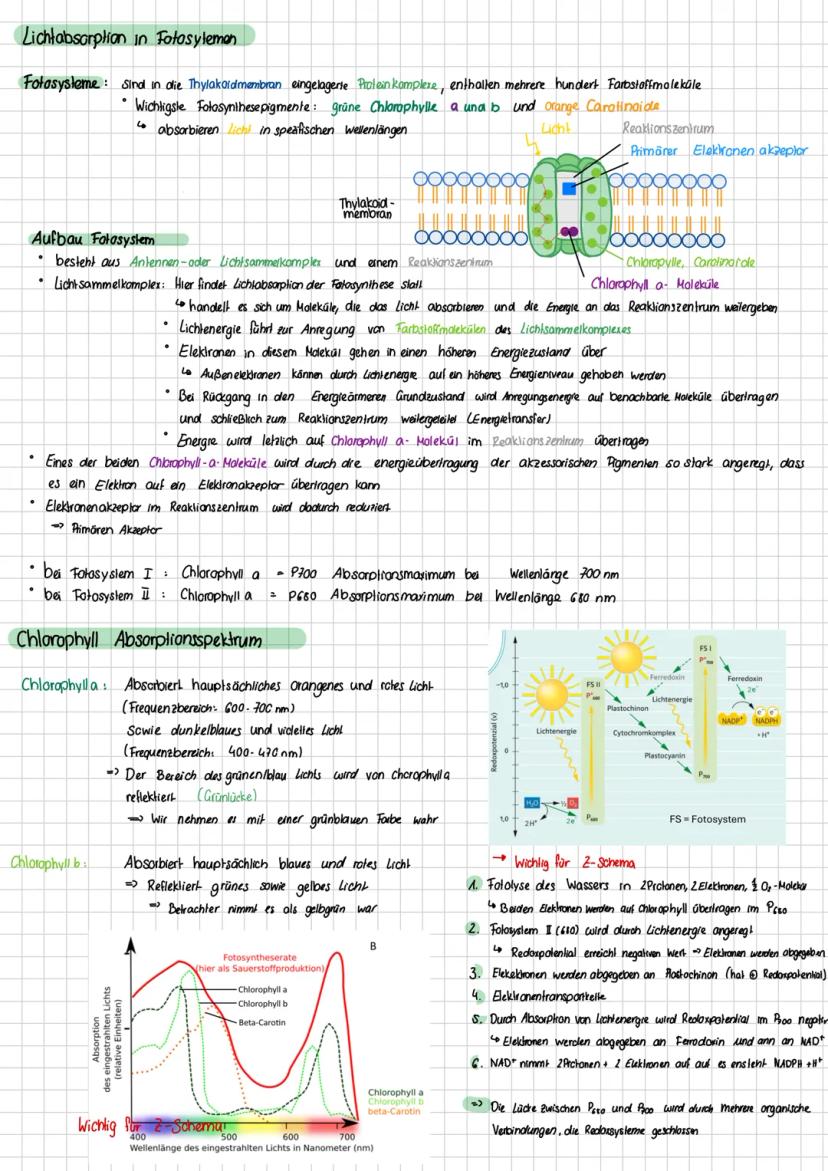 Lichtabsorption in Fotosytemen
Fotosysteme: sind in die Thylakoidmembran eingelagerte Proteinkomplexe, enthalten mehrere hundert Farbstoffmoleküle
• Wichtigste Fotosynthesepigmente: grüne Chlorophylle a und b und orange Carotinoide
↳ absorbieren Licht in spezifischen Wellenlängen
Licht
Reaktionszentrum
Primärer Elektronen akzeptor
Thylakoid-
membran
Chloropylle, Carotinoide
Chlorophyll a- Moleküle
Aufbau Fotosystem
• besteht aus Antennen-oder Lichtsammelkomplex und einem Reaktionszentrum
• Lichtsammelkomplex: Hier findet Lichtabsorption der Fotosynthese statt
↳ handelt es sich um Moleküle, die das Licht absorbieren und die Energie an das Reaktionszentrum weitergeben
• Lichtenergie führt zur Anregung von Farbstoffmolekülen des Lichtsammelkomplexes
• Elektronen in diesem Molekül gehen in einen höheren Energiezustand über
↳ Außenelektronen können durch Lichtenergie auf ein höheres Energieniveau gehoben werden
• Bei Rückgang in den Energieärmeren Grundzustand wird Anregungsenergie auf benachbarte Moleküle übertragen
und schließlich zum Reaktionszentrum weitergeleitet (Energietransfer)
• Energie wird letzlich auf Chlorophyll a- Molekül im Reaktionszentrum übertragen
• Eines der beiden Chlorophyll-a-Moleküle wird durch die energieübertragung der akzessorischen Pigmenten so stark angeregt, dass
es ein Elektron auf ein Elektronakzeptor übertragen kann
• Elektronenakzeptor im Reaktionszentrum wird dadurch reduziert
=> Primären Akzeptor
• bei Fotosystem I : Chlorophyll a = P700 Absorptionsmaximum bei Wellenlänge 700 nm
• bei Fotosystem II : Chlorophyll a = P680 Absorptionsmaximum bei Wellenlänge 680 nm
Chlorophyll Absorptionsspektrum
Chlorophyll a: Absorbiert hauptsächliches orangenes und rotes Licht
(Frequenzbereich: 600-700 nm)
Sowie dunkelblaues und violettes Licht
(Frequenzbereich: 400-470 nm)
=> Der Bereich des grünen/blau Lichts wird von chorophyll a
reflektiert (Grünlücke)
=> Wir nehmen es mit einer grünblauen Farbe wahr
Chlorophyll b: Absorbiert hauptsächlich blaues und rotes Licht
=> Reflektiert grünes sowie gelbes Licht
=> Betrachter nimmt es als gelbgrün war
Redoxpotenzial (v)
-1,0
0
1,0
Lichtenergie
H₂O
½ O₂
2H⁺
2e⁻
FS II
P*₆₈₀
P₆₈₀
Plastochinon
Cytochromkomplex
Plastocyanin
Ferredoxin
Lichtenergie
FS I
P*₇₀₀
P₇₀₀
Ferredoxin
2e⁻
NADP⁺
e⁻ e⁻
NADPH
+ H⁺
FS = Fotosystem
→ Wichtig für Z-Schema
1. Fotolyse des Wassers in 2Protonen, 2Elektronen, ½ O₂-Molekül
↳ Beiden Elektronen werden auf Chlorophyll übertragen im P680
2. Fotosystem II (680) wird durch Lichtenergie angeregt
↳ Redoxpotential erreicht negativen Wert => Elektronen werden abgegeben
3. Elekektronen werden abgegeben an Plastochinon (hat ⊕ Redoxpotential)
4. Elektronentransportkette
5. Durch Absorption von Lichtenergie wird Redoxpotential im P700 negativ
↳ Elektronen werden abgegeben an Ferrodoxin und ann an NAD⁺
6. NAD⁺ nimmt 2Protonen + 2 Elektronen auf auf es ensteht NADPH +H⁺
=> Die Lücke zwischen P680 und P700 wird durch mehrere organische
Verbindungen, die Redoxsysteme geschlossen
B
Fotosyntheserate
(hier als Sauerstoffproduktion)
Chlorophyll a
Chlorophyll b
Beta-Carotin
Absorption
des eingestrahlten Lichts
(relative Einheiten)
Chlorophyll a
Chlorophyll b
beta-Carotin
Wichtig für Z-Schema
400 500 600 700
Wellenlänge des eingestrahlten Lichts in Nanometer (nm)